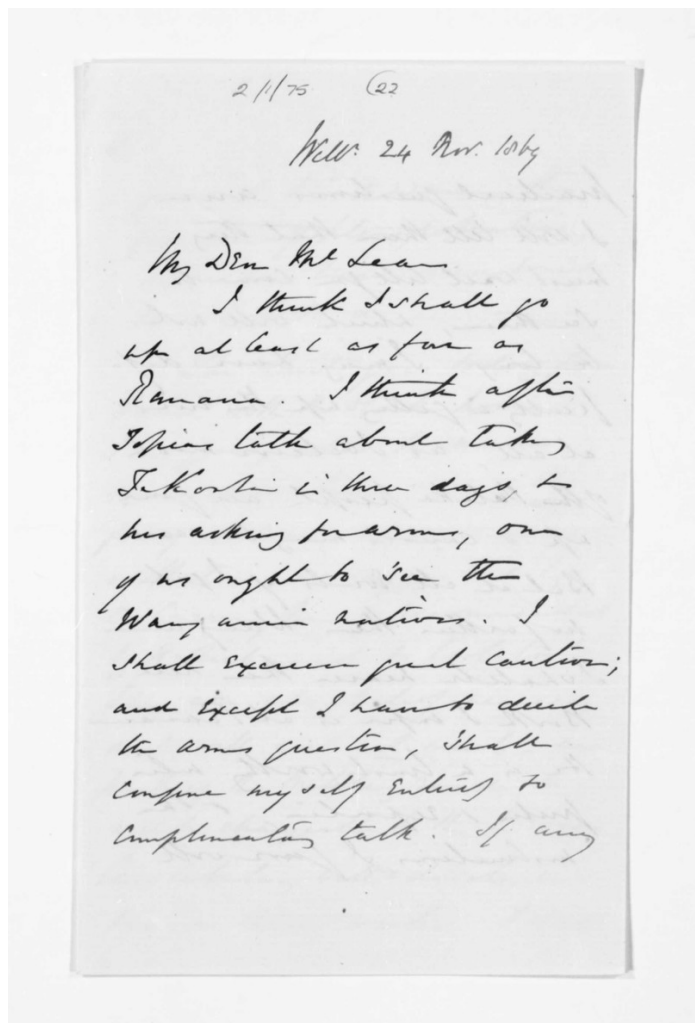 2/1/75 (22
Well. 24 Nov. 1869
My Dear McLean
I think I shall go
up at least as far as
Ranana. I think after
Topias talk about taking
Te Kooti in three days, &
his asking for arms, one
of us ought to see the
Wanganui natives. I
shall exercise great caution;
and except I have to decide
the arms question, shall
confine myself entirely to
complimentary talk. If any